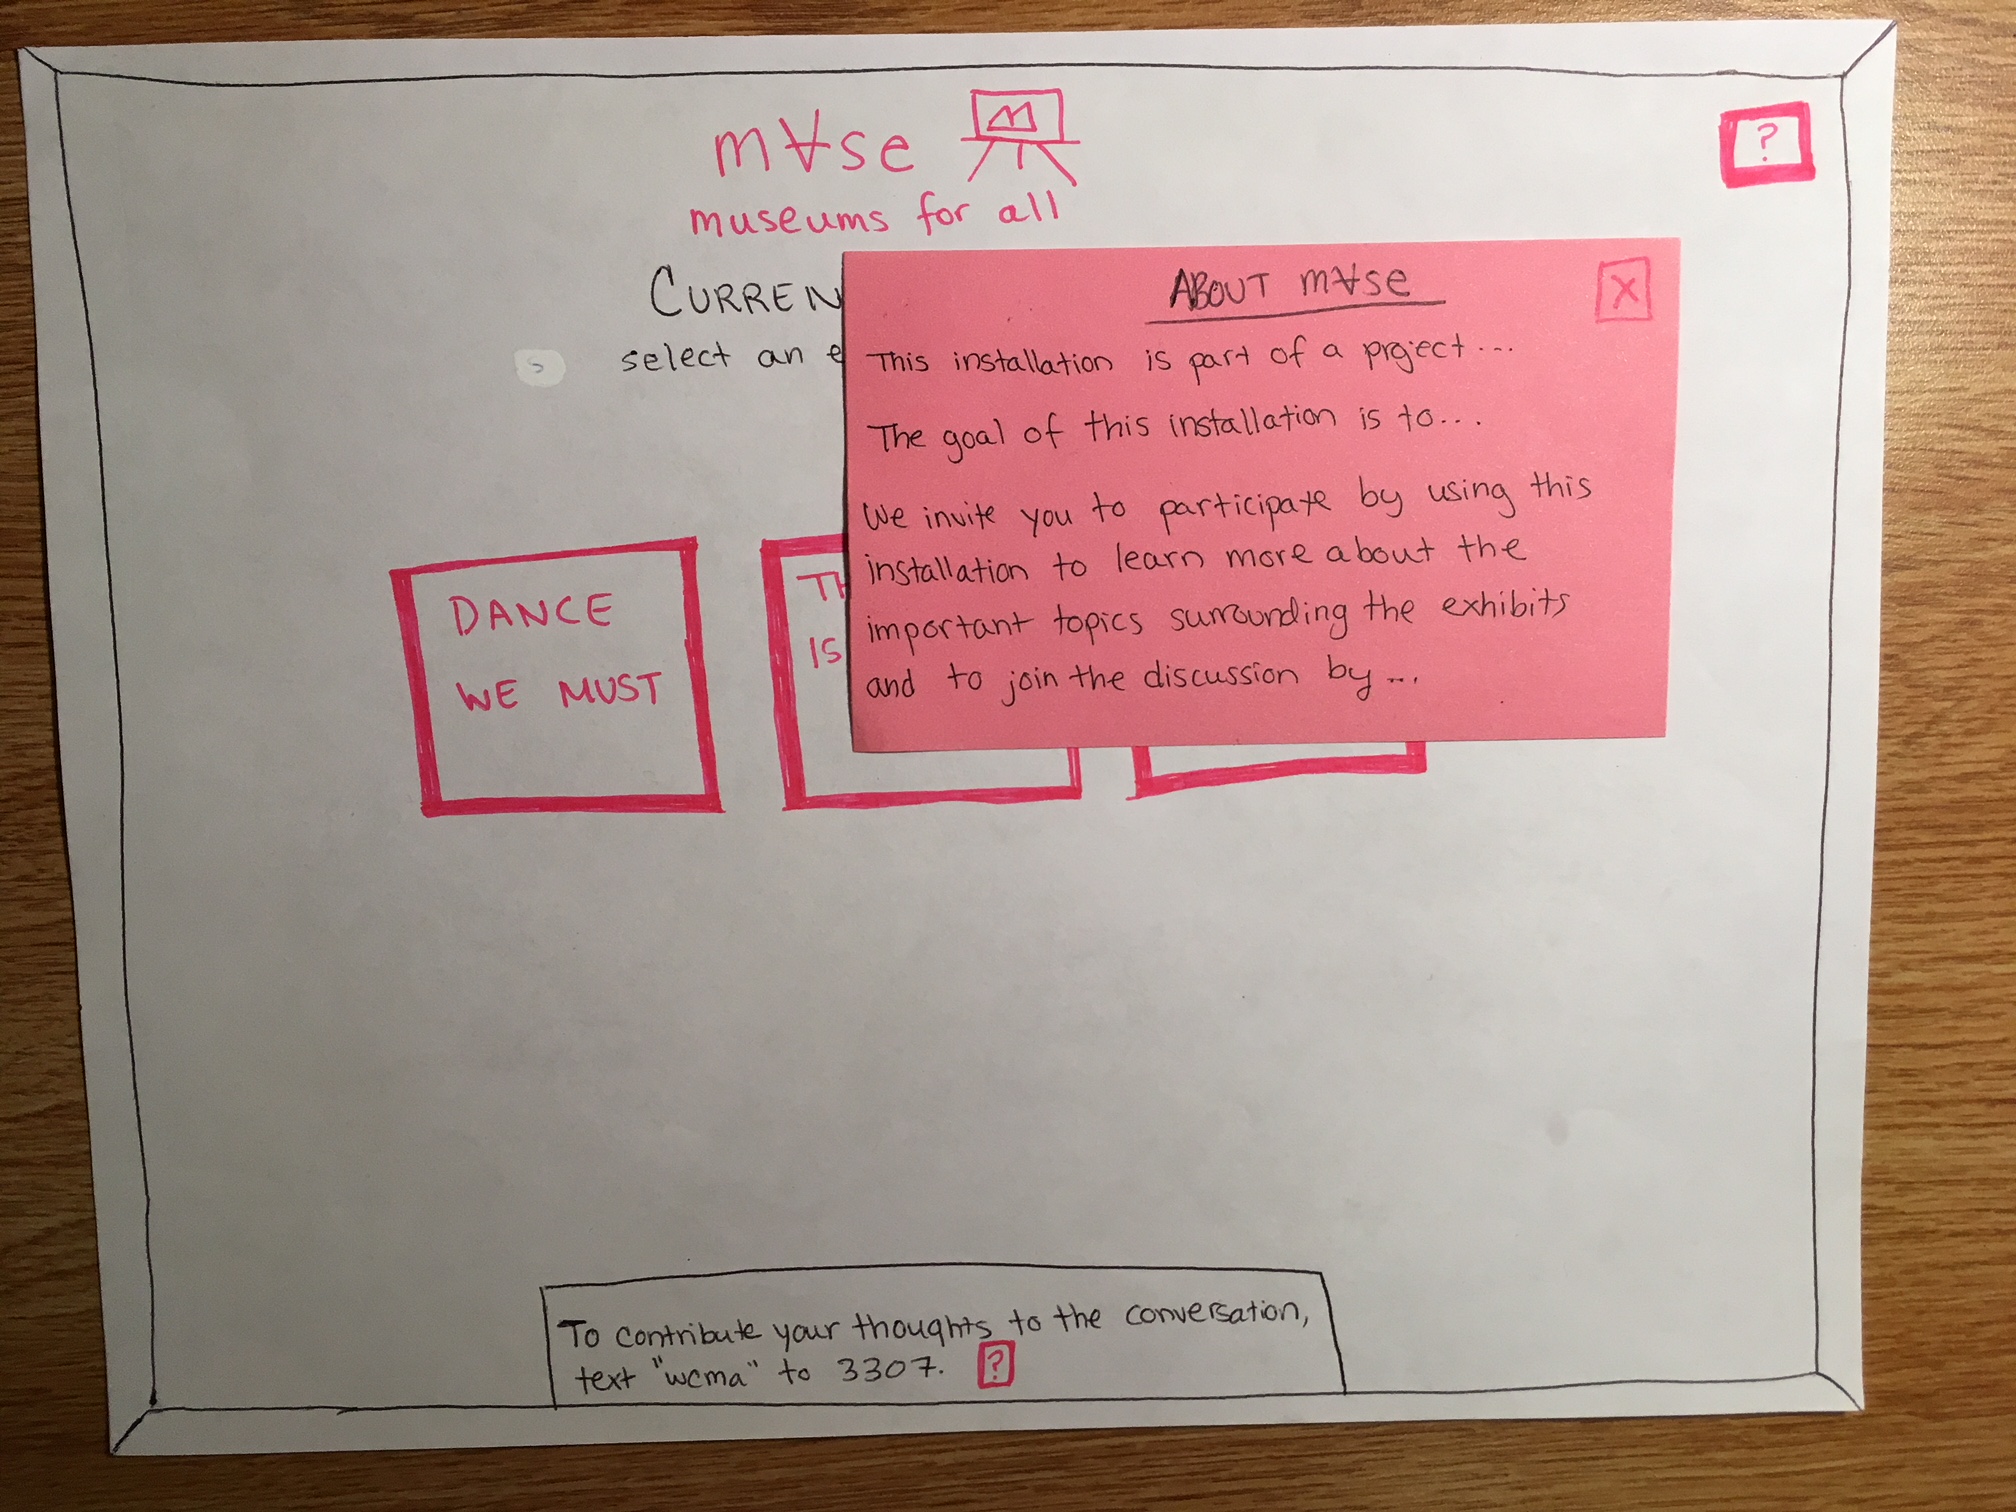 m∀se
M
museums for all
?
CURREN
select an e
s
ABOUT m∀se
X
This installation is part of a project...
The goal of this installation is to...
We invite you to participate by using this
installation to learn more about the
important topics surrounding the exhibits
and to join the discussion by...
DANCE
WE MUST
TH
IS
To contribute your thoughts to the conversation,
text "wcma" to 3307. ?